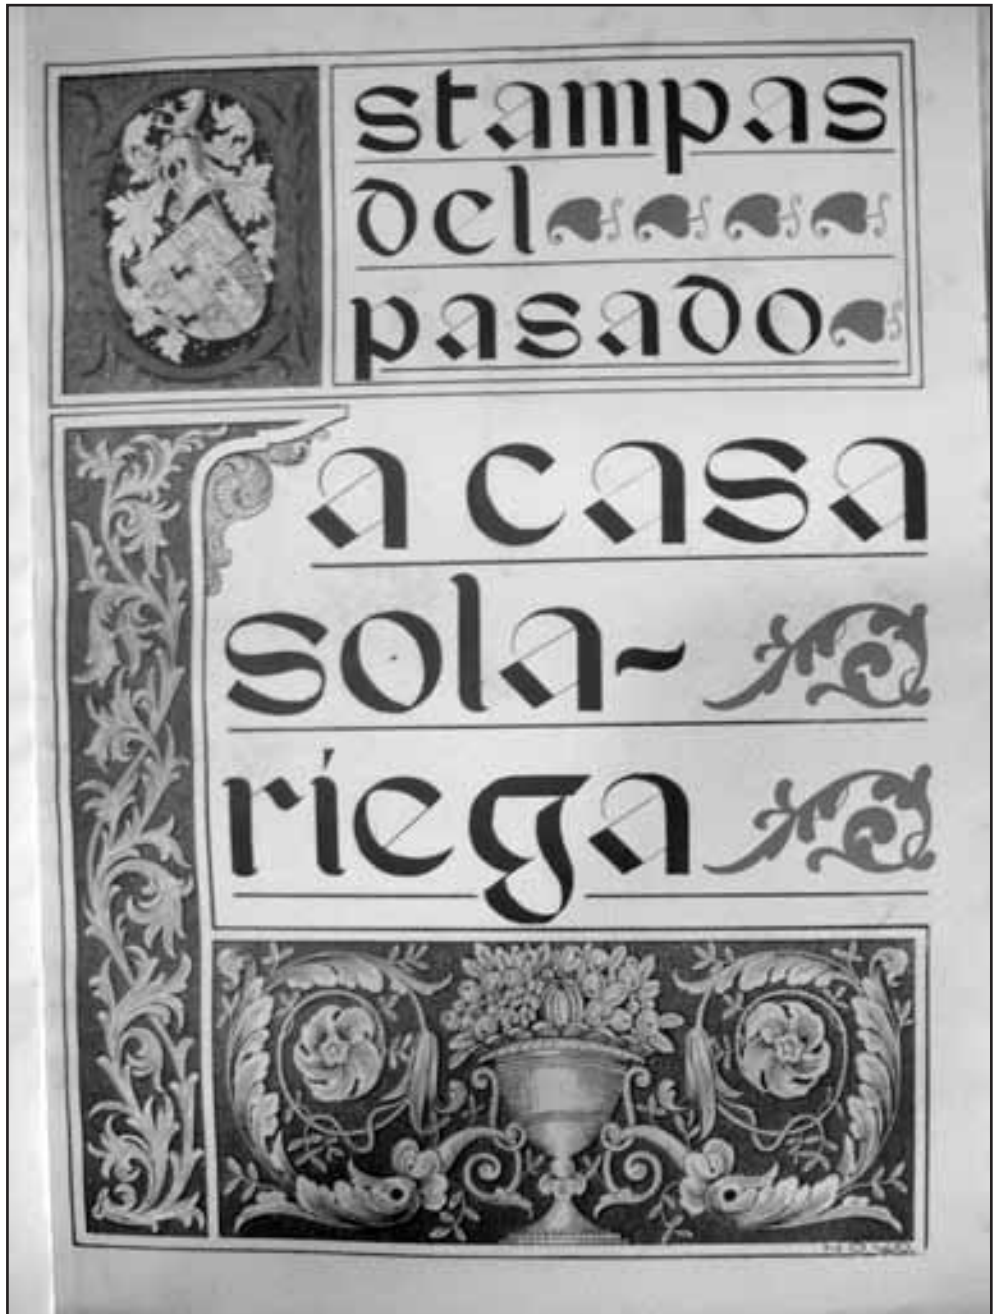 stampas
del
pasado
La casa
sola~
riega